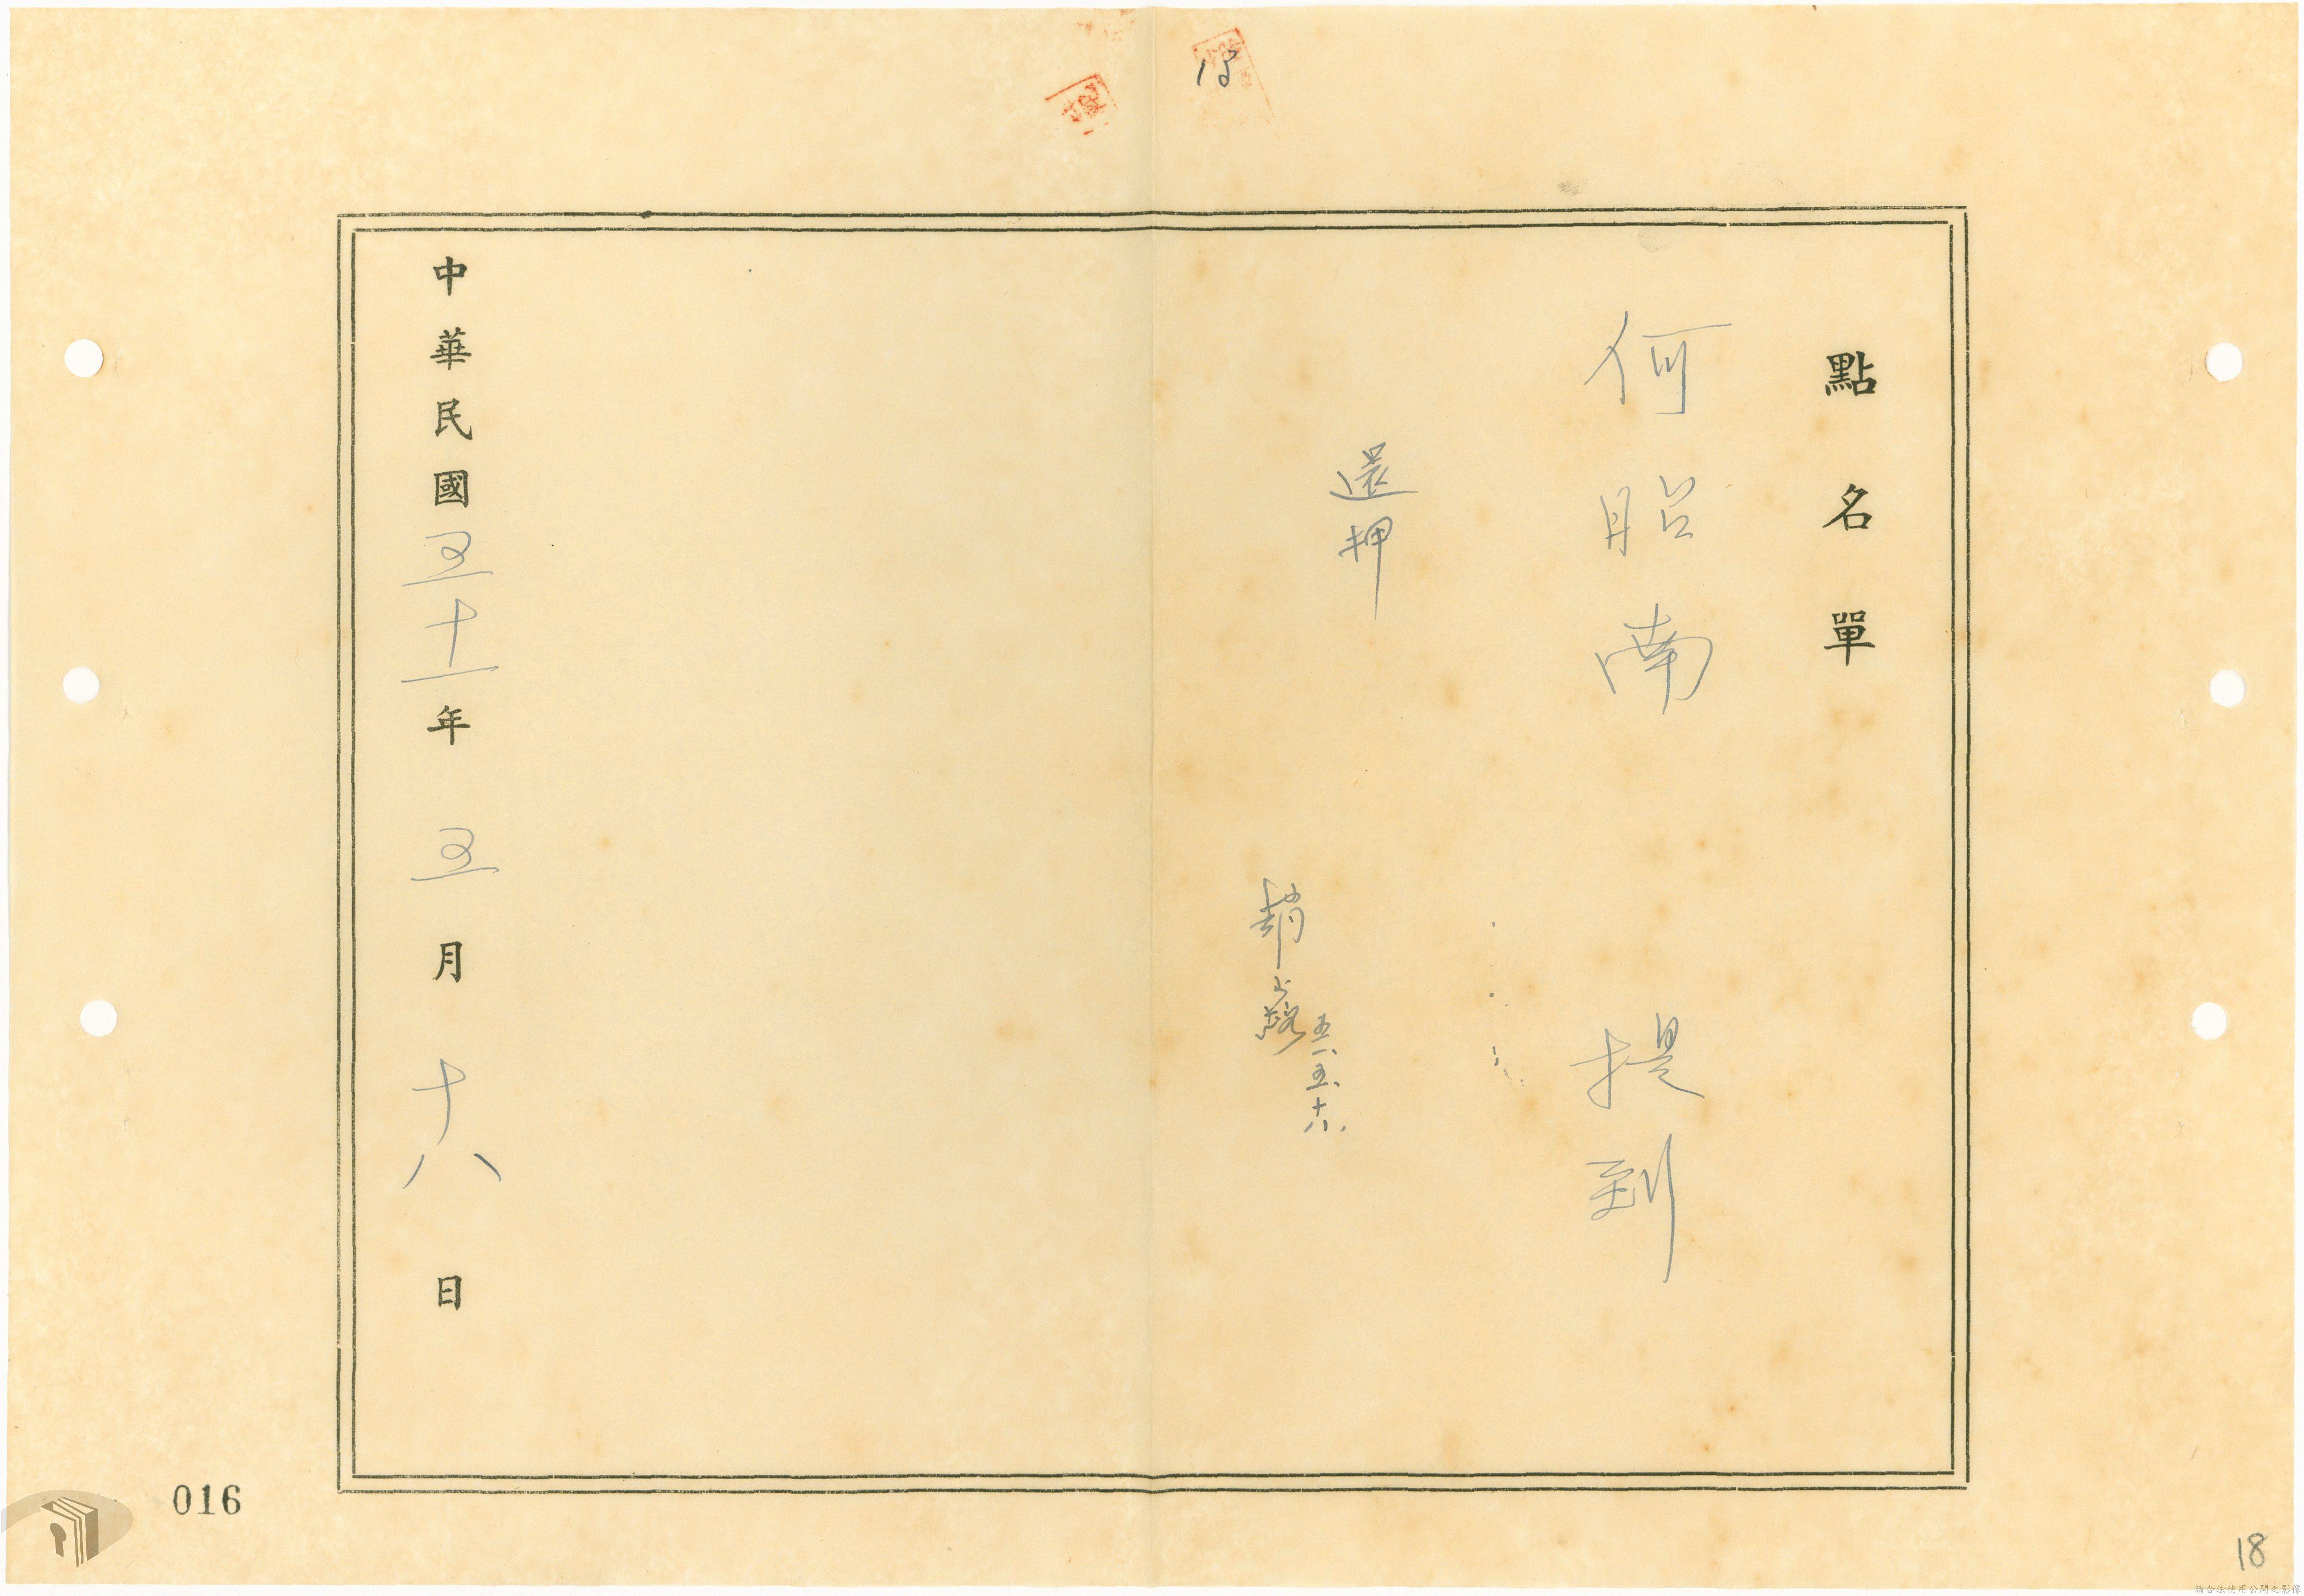 18
點名單
何昭南 提到
還押
趙
五一、五、十八、
中華民國五十一年五月十八日
016
18
請合法使用公開之影像